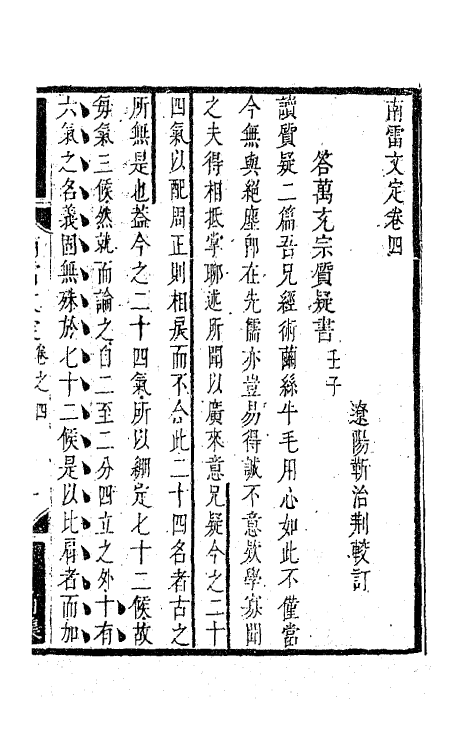 南雷文定卷四
遼陽靳治荆較訂
答萬充宗質疑書 壬子
讀質疑二篇吾兄經術繭絲牛毛用心如此不僅當
今無與絕塵卽在先儒亦豈易得誠不意款學寡聞
之夫得相抵掌聊述所聞以廣來意兄疑今之二十
四氣以配周正則相戾而不合此二十四名者古之
所無是也葢今之二十四氣所以綱定七十二候故
每氣三候然就而論之自二至二分四立之外十有
六氣之名義固無殊於七十二候是以比肩者而加
卷之四